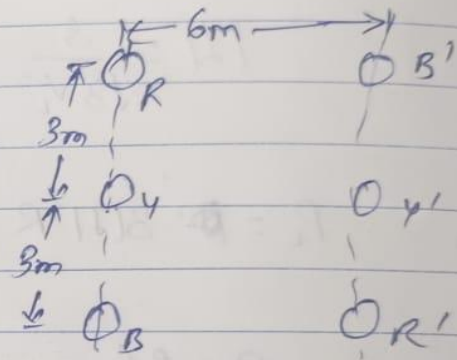 6m
R B'
3m
Y Y'
3m
B R'